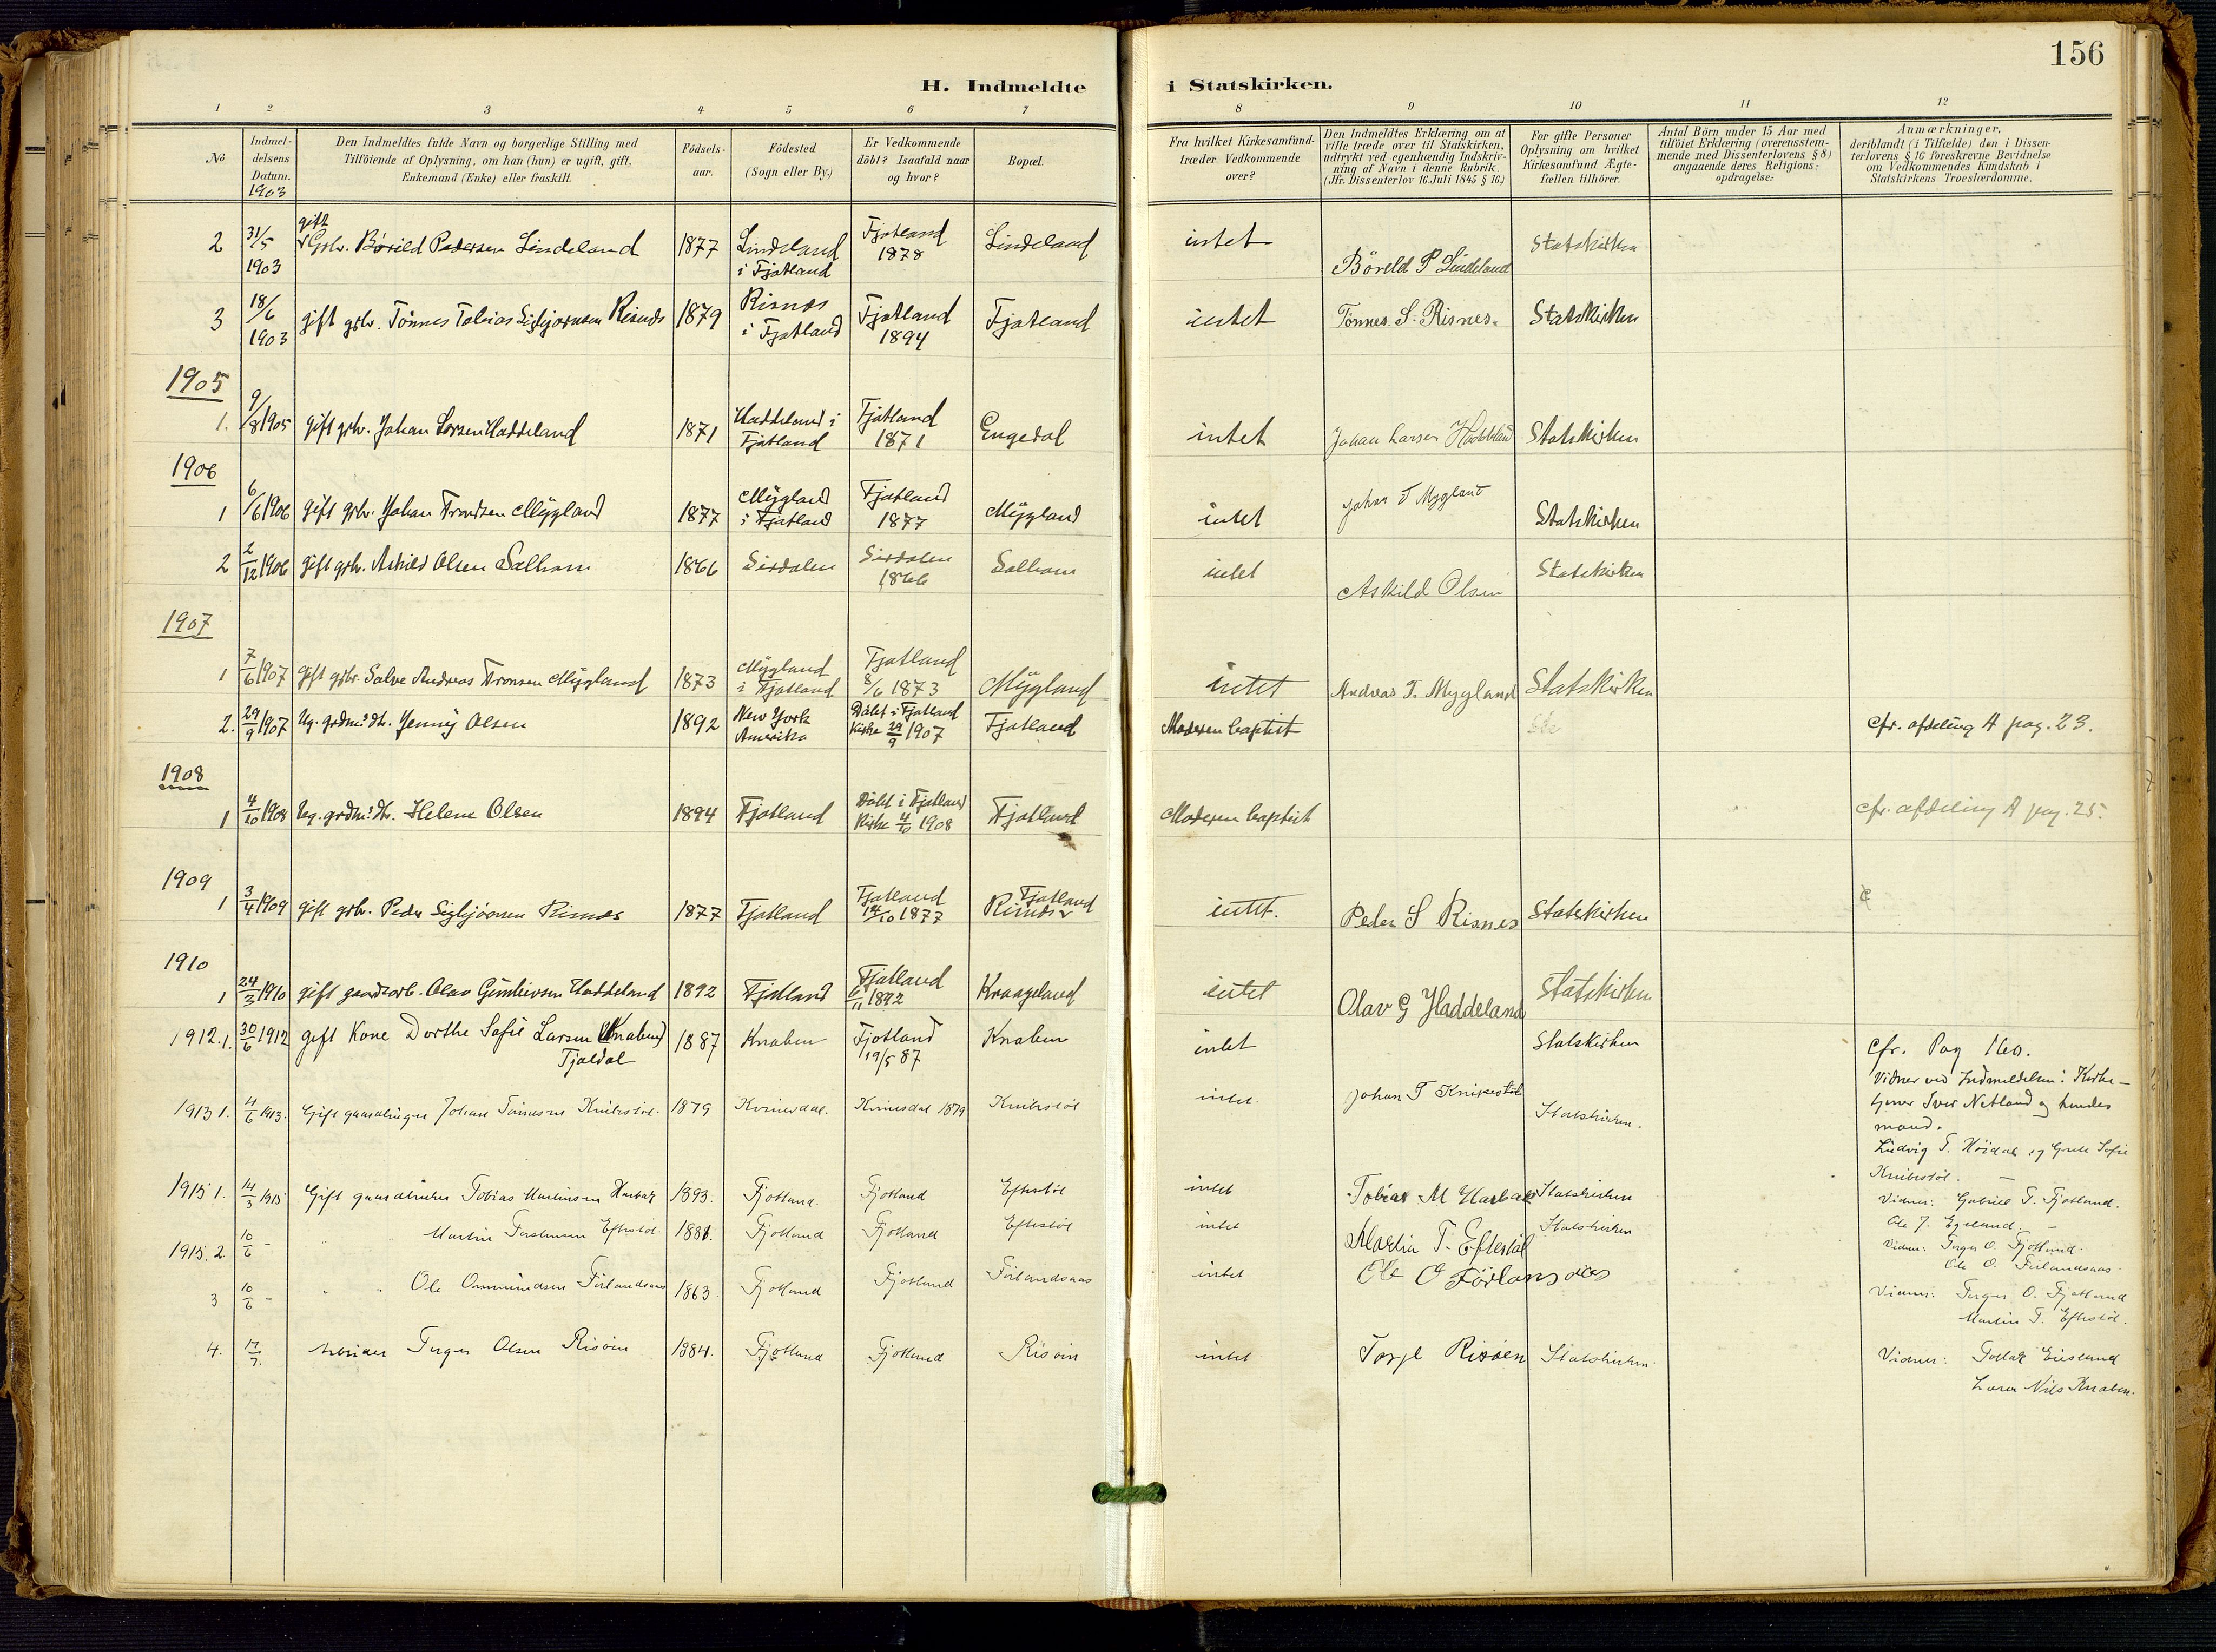 156
H. Indmeldte i Statskirken.
1 2 3 4 5 6 7 8 9 10 11 12
No
Indmeldelsens Datum.
1903
Den Indmeldtes fulde Navn og borgerlige Stilling med
Tilföiende af Oplysning, om han (hun) er ugift, gift,
Enkemand (Enke) eller fraskilt.
Födsels-
aar.
Födested
(Sogn eller By.)
Er Vedkommende
döbt? Isaafald naar
og hvor?
Bopæl.
Fra hvilket Kirkesamfund
træder Vedkommende
over?
Den Indmeldtes Erklæring om at
ville træde over til Statskirken,
udtrykt ved egenhændig Indskriv-
ning af Navn i denne Rubrik.
(Jfr. Dissenterlov 16. Juli 1845 § 16.)
For gifte Personer
Oplysning om hvilket
Kirkesamfund Ægte-
fællen tilhörer.
Antal Börn under 15 Aar med
tilföiet Erklæring (overensstem-
mende med Dissenterlovens § 8)
angaaende deres Religions-
opdragelse.
Anmærkninger,
deriblandt (i Tilfælde) den i Dissen-
terlovens § 16 foreskrevne Bevidnelse
om Vedkommendes Kundskab i
Statskirkens Troeslærdomme.
2 31/5 1903 gift Grbr. Börild Pedersen Lindeland 1877 Lindeland i Fjotland Fjotland 1878 Lindeland intet Böreld P Lindeland Statskirken
3 18/6 1903 gift grbr. Tönnes Tobias Sigbjörnsen Risnes 1879 Risnes i Fjotland Fjotland 1894 Fjotland intet Tönnes. S. Risnes. Statskirken
1905
1. 9/8 1905 gift grbr. Johan Larsen Haddeland 1871 Haddeland i Fjotland Fjotland 1871 Engedal intet Johan Larsen Haddeland Statskirken
1906
1 6/6 1906 gift grbr. Johan Trondsen Mygland 1877 Mygland i Fjotland Fjotland 1877 Mygland intet Johan T Mygland Statskirken
2 2/12 1906 gift grbr. Askild Olsen Salhom 1866 Sirdalen Sirdalen 1866 Salhom intet Askild Olsen Statskirken
1907
1 7/6 1907 gift grbr. Salve Andreas Tronsen Mygland 1873 Mygland i Fjotland Fjotland 8/6 1873 Mygland intet Andreas T. Mygland Statskirken
2. 29/9 1907 Ug. grdm: dt. Jenny Olsen 1892 New York Amerika Döbt i Fjotland Kirke 29/9 1907 Fjotland Moderen baptist cfr. afdeling A pag. 23.
1908
1 4/10 1908 Ug. grdm: dt. Helene Olsen 1894 Fjotland Döbt i Fjotland Kirke 4/10 1908 Fjotland Moderen baptist cfr. afdeling A pag. 25.
1909
1 3/4 1909 gift grbr. Peder Sigbjörnsen Risnes 1877 Fjotland Fjotland 14/10 1877 Fjotland Risnes intet. Peder S Risnes Statskirken
1910
1 24/3 1910 gift gaardarb. Olav Haddeland 1892 Fjotland Fjotland 6/11 1892 Kraageland intet Olav G Haddeland Statskirken
1912. 1. 30/6 1912 gift Kone Dorthe Sofie Larsen (Knaben) Tjaldal 1887 Knaben Fjotland 19/5 87 Knaben intet Statskirken cfr. Pag 160.
Vidner ved Indmeldelsen: Kirke-
tjener Iver Netland og hendes
mand.
1913 1. 4/6 1913. Gift gaardbruger Johan Tönnesen Knibestöl. 1879 Kvinesdal. Kvinesdal 1879 Knibestöl intet. Johan T Knipestöl Statskirken.
Ludvig T. Höidal og Grete Sofie
Knibestöl. —
1915 1. 14/3 1915 Gift gaardbruker Tobias Martinsen Haabak 1893. Fjotland. Fjotland Eftestöl intet Tobias M Statskirken
Vidner: Gabriel T. Fjotland.
Ole J. Egeland. —
1915. 2 10/6 - " " Martin Eftestöl. 1888. Fjotland Fjotland Eftestöl intet Martin T. Eftestöl Statskirken
Vidner: Terger O. Fjotland.
Ole O. Förlandsaas.
3 10/6 - " " Ole Ommundsen Förlandsaas 1863 Fjotland Fjotland Förlandsaas intet Ole O Förlansaas
Vidner: Terger O. Fjotland
Martin T. Eftestöl.
4. 17/7. Terger Olsen Risöin 1884. Fjotland Fjotland Risöin intet Torjel Risöen Statskirken.
Vidner: Tollak
Nils Knaben.